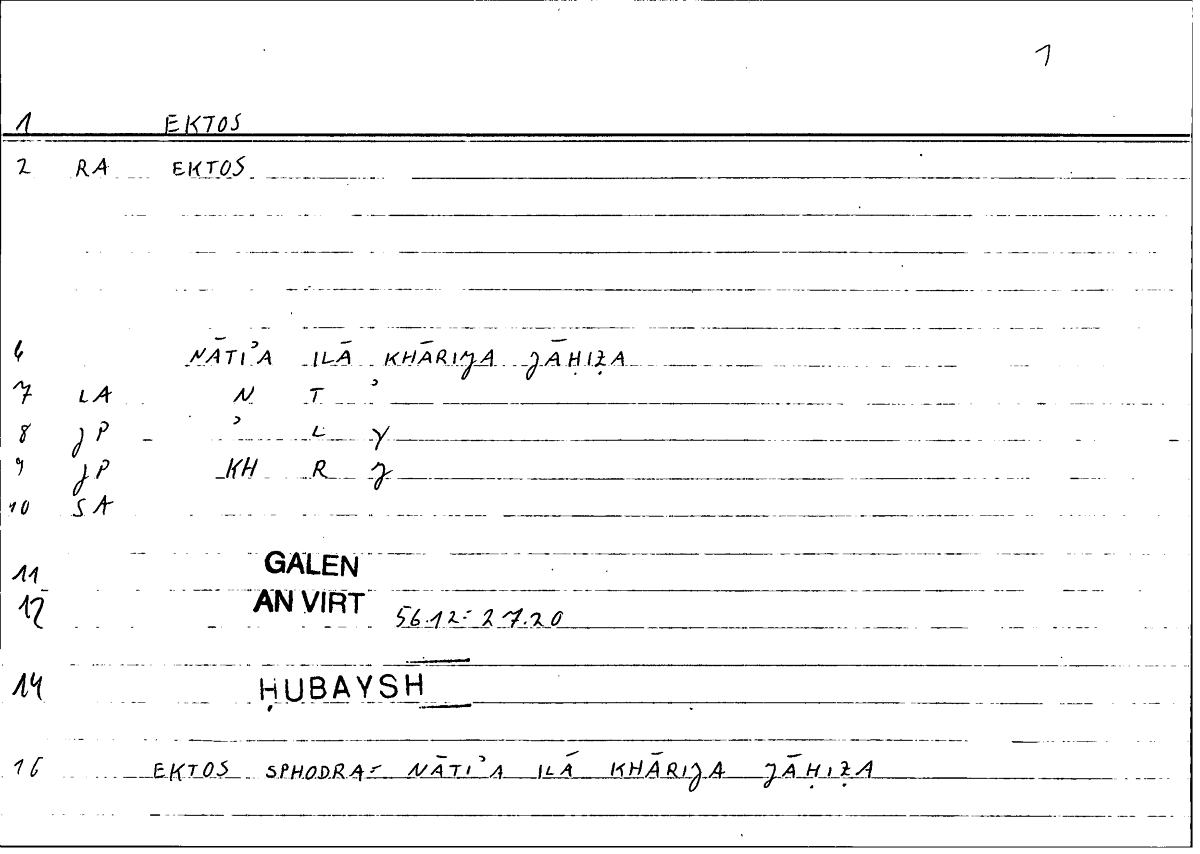 1
1 EKTOS
2 RA EKTOS
6 NĀTIʾA ILĀ KHĀRIJA JĀḤIẒA
7 LA N T ʾ
8 JP ʾ L Y
9 JP KH R J
10 SA
11 GALEN
12 AN VIRT 56.12= 27.20
14 ḤUBAYSH
16 EKTOS SPHODRA= NĀTIʾA ILĀ KHĀRIJA JĀḤIẒA